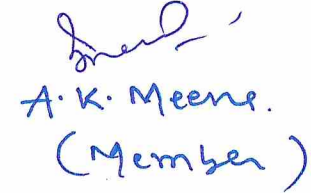 A. K. Meena.
(Member)